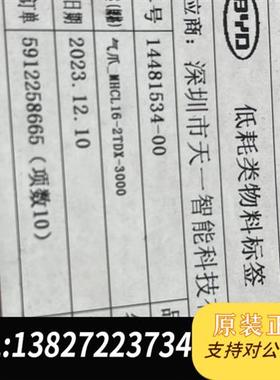 BYD
低耗类物料标签
应商：深圳市天一智能科技
号 14481534-00
气爪_MHCL16-2TDX-3000
日期 2023.12.10
订单 5912258665（项数10）
品
:13827223734
原装正
支持对公